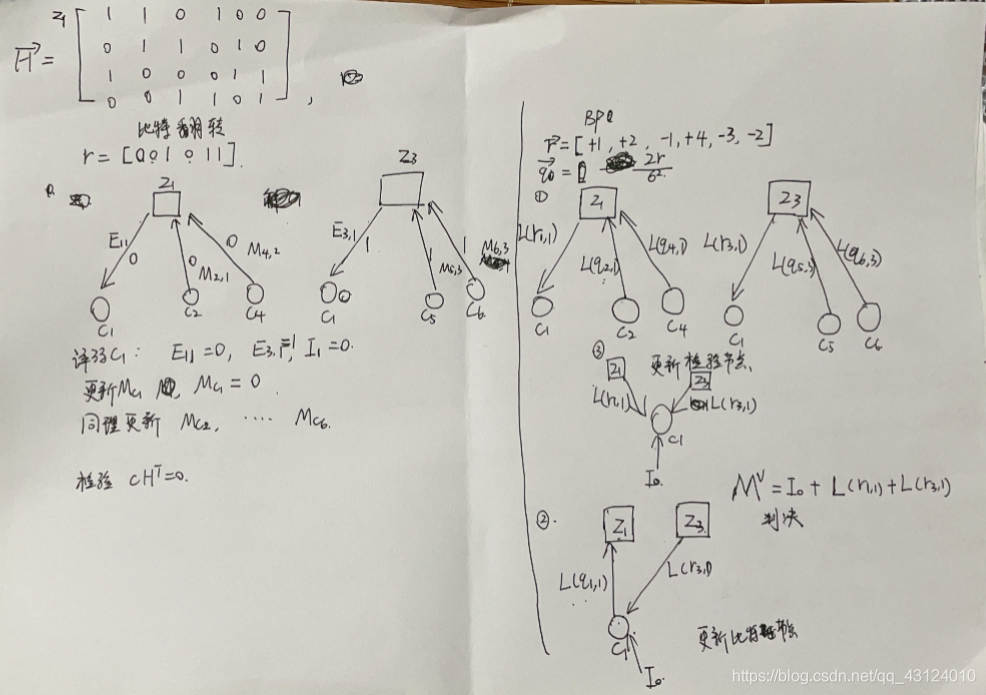 Z1
H = [ 1 1 0 1 0 0
0 1 1 0 1 0
1 0 0 0 1 1
0 0 1 1 0 1 ] ,
比特翻转
r = [0 0 1 0 1 1]
Z1
E11
0
0
M2,1
0
M4,2
C1
C2
C4
Z3
E3,1
1
1
M5,3
1
M6,3
C1
C5
C6
译码C1: E11=0, E3,1=1, I1=0.
更新Mc1, Mc1=0
同理更新 Mc2, ···· Mc6.
检验 cHT=0.
r=[+1, +2, -1, +4, -3, -2]
q0= 2r
6²
①
Z1
L(r1,1)
L(q2,1)
L(q4,1)
C1
C2
C4
Z3
L(r3,1)
L(q5,3)
L(q6,3)
C1
C5
C6
③
更新检验节点
Z1
Z3
L(r1,1)
L(r3,1)
C1
I0
Mv=I0+L(r1,1)+L(r3,1)
判决
②.
Z1
Z3
L(q1,1)
L(r3,1)
C1
I0
更新比特节点
https://blog.csdn.net/qq_43124010